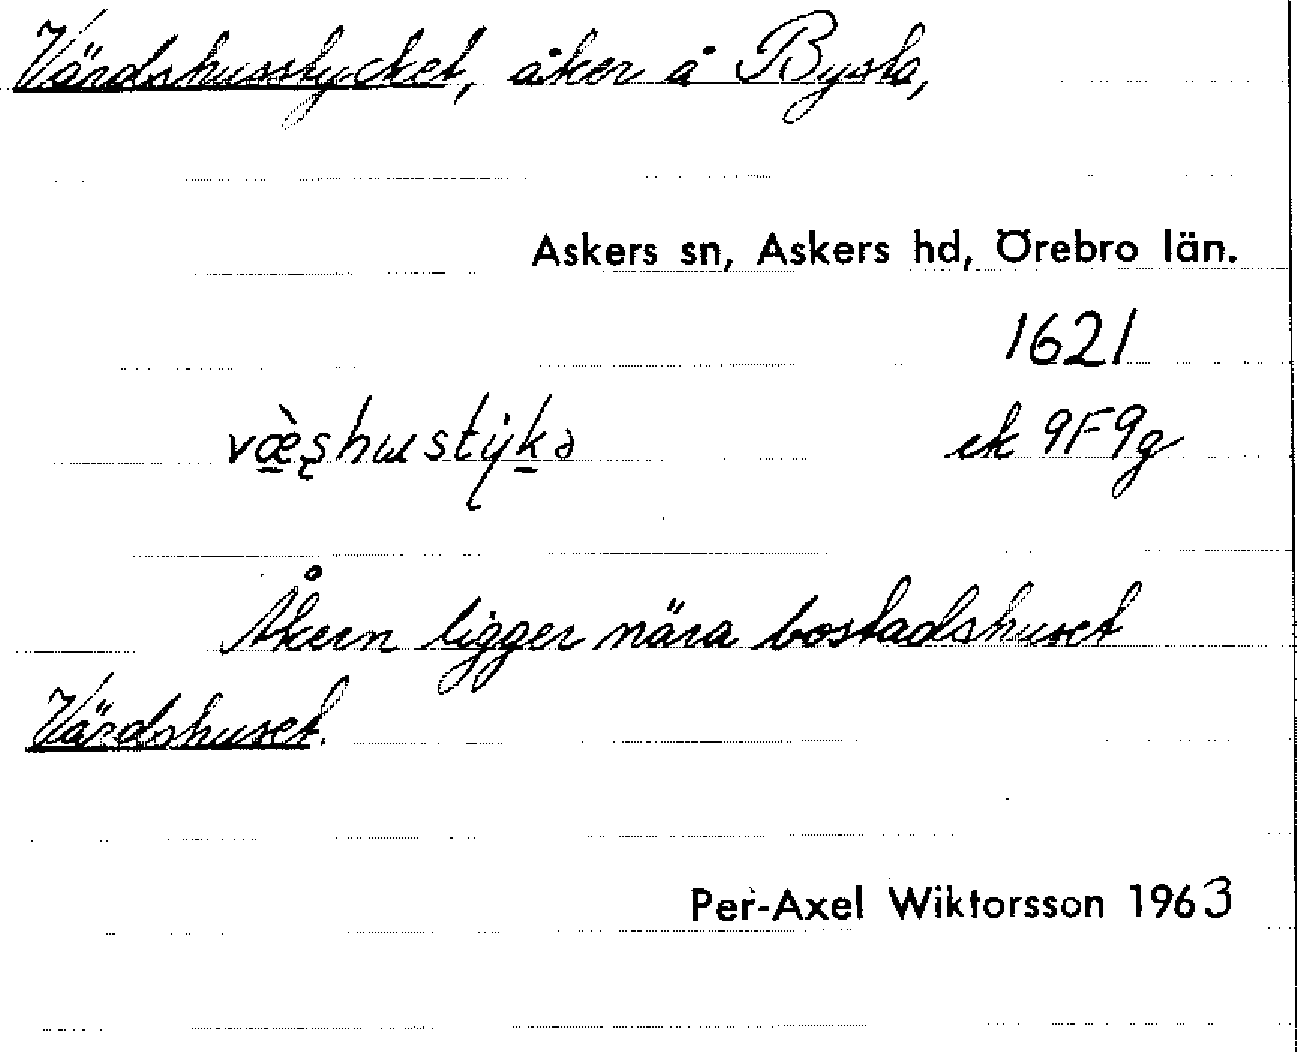 Värdshusstycket, åker å Bysta,
Askers sn, Askers hd, Örebro län.
1621
væ̀ʂhustẏkə ek 9F9g
Åkern ligger nära bostadshuset
Värdshuset.
Per-Axel Wiktorsson 1963